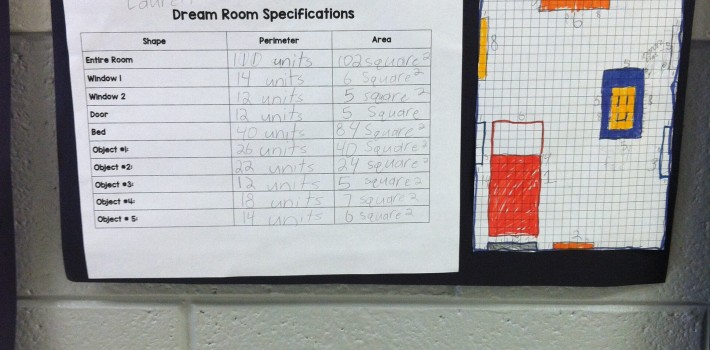 Lauren
Dream Room Specifications
Shape Perimeter Area
Entire Room 110 units 102 square 2
Window 1 14 units 6 square 2
Window 2 12 units 5 square 2
Door 12 units 5 square
Bed 40 units 84 square 2
Object #1: 26 units 40 square 2
Object #2: 22 units 24 square 2
Object #3: 12 units 5 square 2
Object #4: 18 units 7 square 2
Object # 5: 14 units 6 square 2
6
8
5
11
5